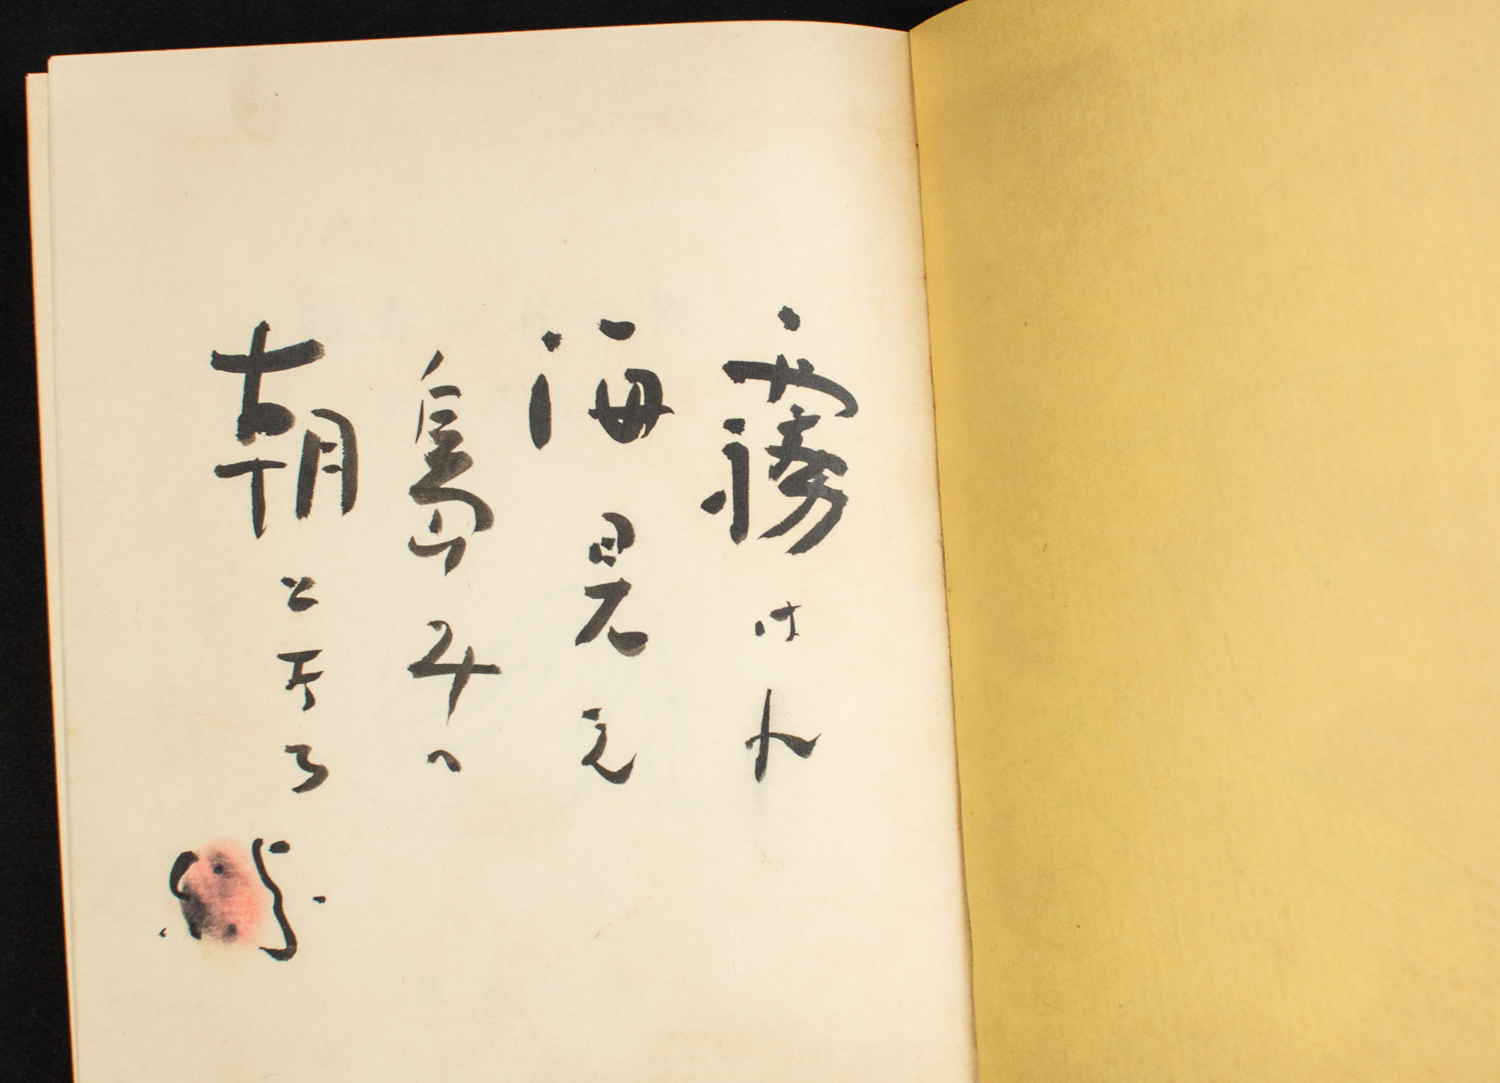 霧はれ
海見え
島みへ
朝となる